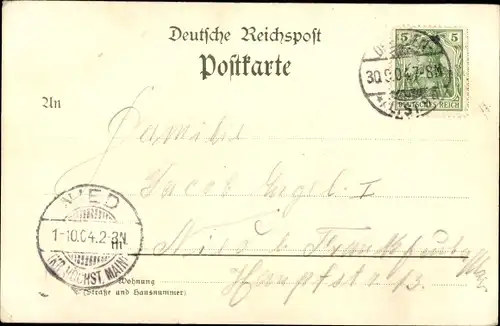 Deutsche Reichspost
Postkarte
5 5
DEUTSCHES REICH
30.9.04.7-8N
An
Familie
Jacob Engel I
Nied b Frankfurt
Main
Hauptstr 13.
NIED
1-10.04.2-3N
(KR. HÖCHST, MAIN)
Wohnung
(Straße und Hausnummer)